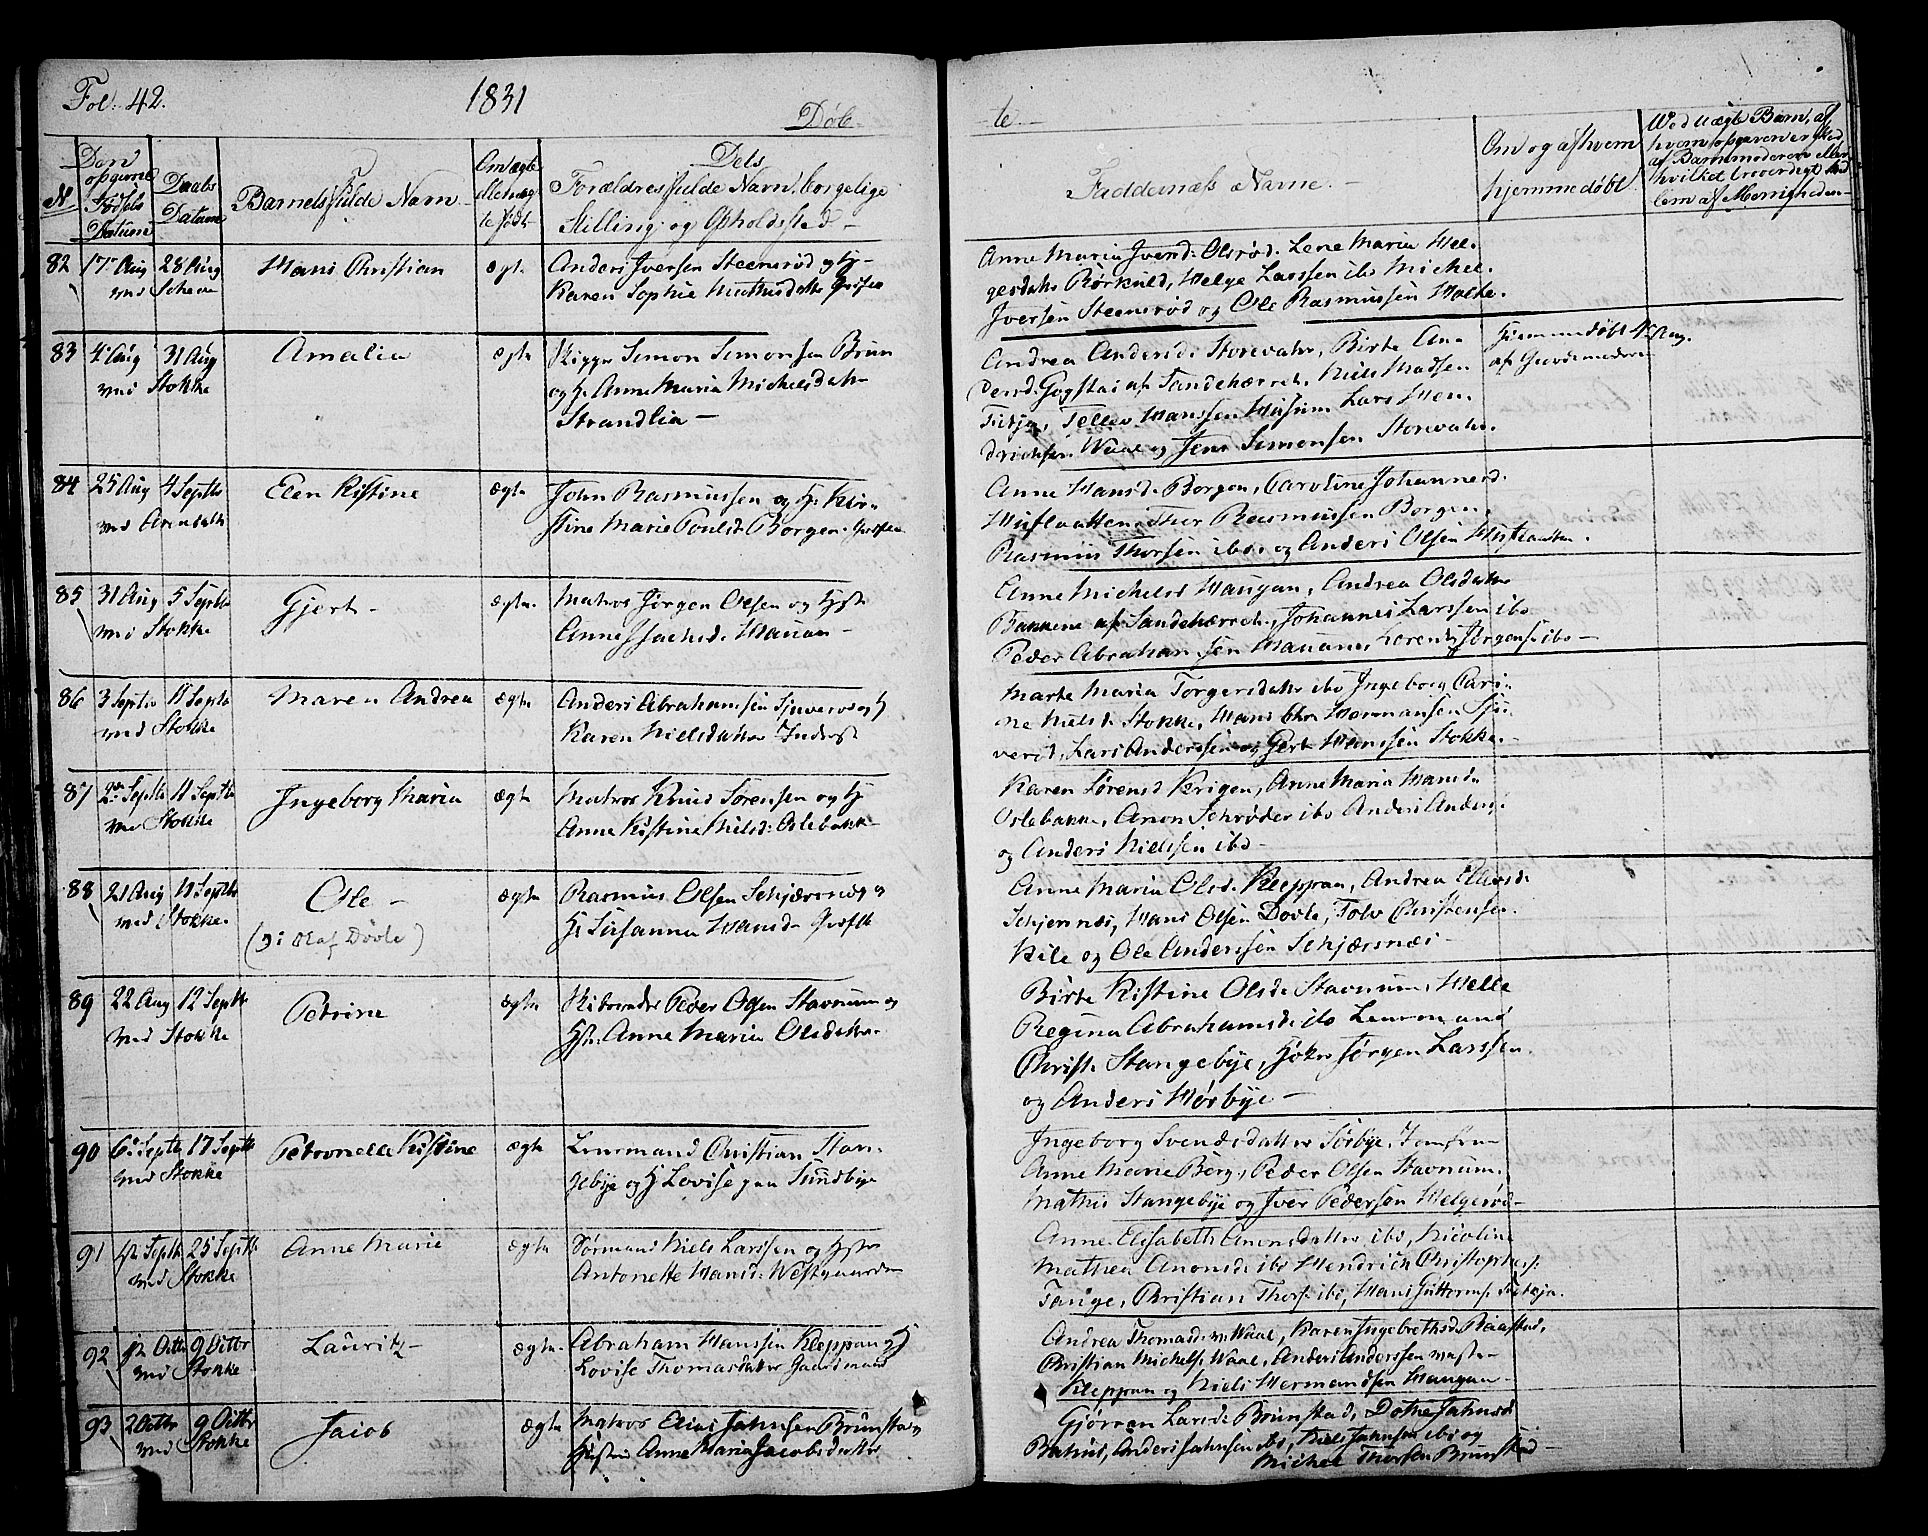 Fol. 42.
1831
Døb
te
N
Den opgivne Fødsels Datum
Daabs Datum
Barnets fulde Navn
Om ægte eller uægte født
Dets Forældres fulde Navn, borgelige Stilling og Opholdssted
Faddernes Navne.
Om og af hvem hjemmedøbt
82
17 Aug 28 Aug
Hans Christian
ægte
Anders Iversen Steensrød og H.
Karen Sophie Mathisdatter
Anne Maria Iversd. Olsrød. Lene Maria Hel-
gesdatr Rørkuld, Helge Larssen ibd Michel
Iversen Steensrød og Ole Rasmussen Holte.
83
4 Aug 31 Aug
med Stokke
Amalia
ægte
Skipper Simon Simonsen Brun
og H. Anne Maria Michelsdatr
Strandlia
Andrea Andersd. Storevahr, Birte An-
dersd. Gogstad af Sandeherret, Niels Madsen
Tellev Hanssen Husum Lars Hen-
drichsen Waae og Jens Simonsen Storevahr.
Hjemmedøbt 4 Aug.
af Giordemoderen
84
25 Aug 4 Septbr
med Arendal
Elen Kistine
ægte
John Rasmussen og H. Kir-
stine Marie Poulsd. Borgen
Anne Hansd. Borgen, Caroline Johannesd.
Thor Rasmussen Borgen,
Rasmus Thorsen ibd. og Anders Olsen
85
31 Aug 5 Septbr
med Stokke
Gjert
ægte
Matros Jørgen Olsen og Hst
Anne Isachsd. Hauan
Anne Michelsd Haugan, Andrea Olsdatr
Bakkene af Sandeherret, Johannes Larssen ibd
Peder Abrahamsen Hauane, Lorents Jørgens. ibd
86
3 Septbr 11 Septbr
med Stokke
Maren Andrea
ægte
Anders Abrahamsen og H
Karen Nielsdatter
Marte Maria Torgersdatr ibd Ingeborg Cari-
ne Nielsd Stokke, Hans Chr Hermansen
Lars Anderssen og Gert Hanssen Stokke.
87
2 Septbr 11 Septbr
med Stokke
Ingeborg Maria
ægte
Matros Knud Sørensen og H
Anne Kistine Nielsd. Oslebakke
Karen Sørensd Krigen, Anne Maria Hansd.
Oslebakke, Anon Schrøder ibd Anders Anders.
og Anders Nielsen ibd
88
21 Aug 11 Septbr
med Stokke.
Ole
(ɔ: Olaf Dovle)
ægte
Rasmus Olsen Schjærsnæs og
H. Susanna Hansd.
Anne Maria Olsd. Kleppan, Andrea
Schjersnæs, Hans Olsen Dovle, Tolv Christensen
Kile og Ole Anderssen Schjærsnæs
89
22 Aug 12 Septbr
med Stokke
Petrine
ægte
Peder Olsen Stavnum og
Hst. Anne Maria Olsdatter
Birte Kistine Olsd. Stavnum, Helle
Regina Abrahamsd. ibd Lensmand
Christ. Stangebye, Jørgen Larssen
og Anders Hørbye
90
6 Septbr 17 Septbr
med Stokke
Petronelle Kistine
ægte
Lensmand Christian Stan-
gebye og H Lovise Sundbye
Ingeborg Svendsdatter Sørbye, Jomfru
Anne Marie Berg, Peder Olsen Stavnum.
Mathis Stangebye og Iver Pedersen Helgerød
91
12 Septbr 25 Septbr
med Stokke
Anne Marie
ægte
Sørmand Niels Larssen og Hstr
Antonette Hansd. Westgaarden
Anne Elisabeth Anonsdatter ibd, Nicoline
Mathea Anonsd ibd Hendrich Christophers.
Tange, Christian Thors. ibd, Hans Guttorms.
92
12 Octbr 9 Octbr
med Stokke
Lauritz
ægte
Abraham Hanssen Kleppan og H
Lovise Thomasdatter Gaardmand
Andrea Thomasd. Waae, Karen Ingebrethsd. Raastad,
Christian Michels. Waae, Anders Anderssen
Kleppan og Niels Hermandsen Haugan
93
2 Octbr 9 Octbr
med Stokke
Jacob
ægte
Matros Elias Jahnsen Brunstad
Hustru Anne Maria Jacobsdatter
Gjørren Larsd. Brunstad, Dothe Jahnsd
Anders Jahnsen ibd, Niels Jahnsen ibd og
Michel Thorsen Brunstad